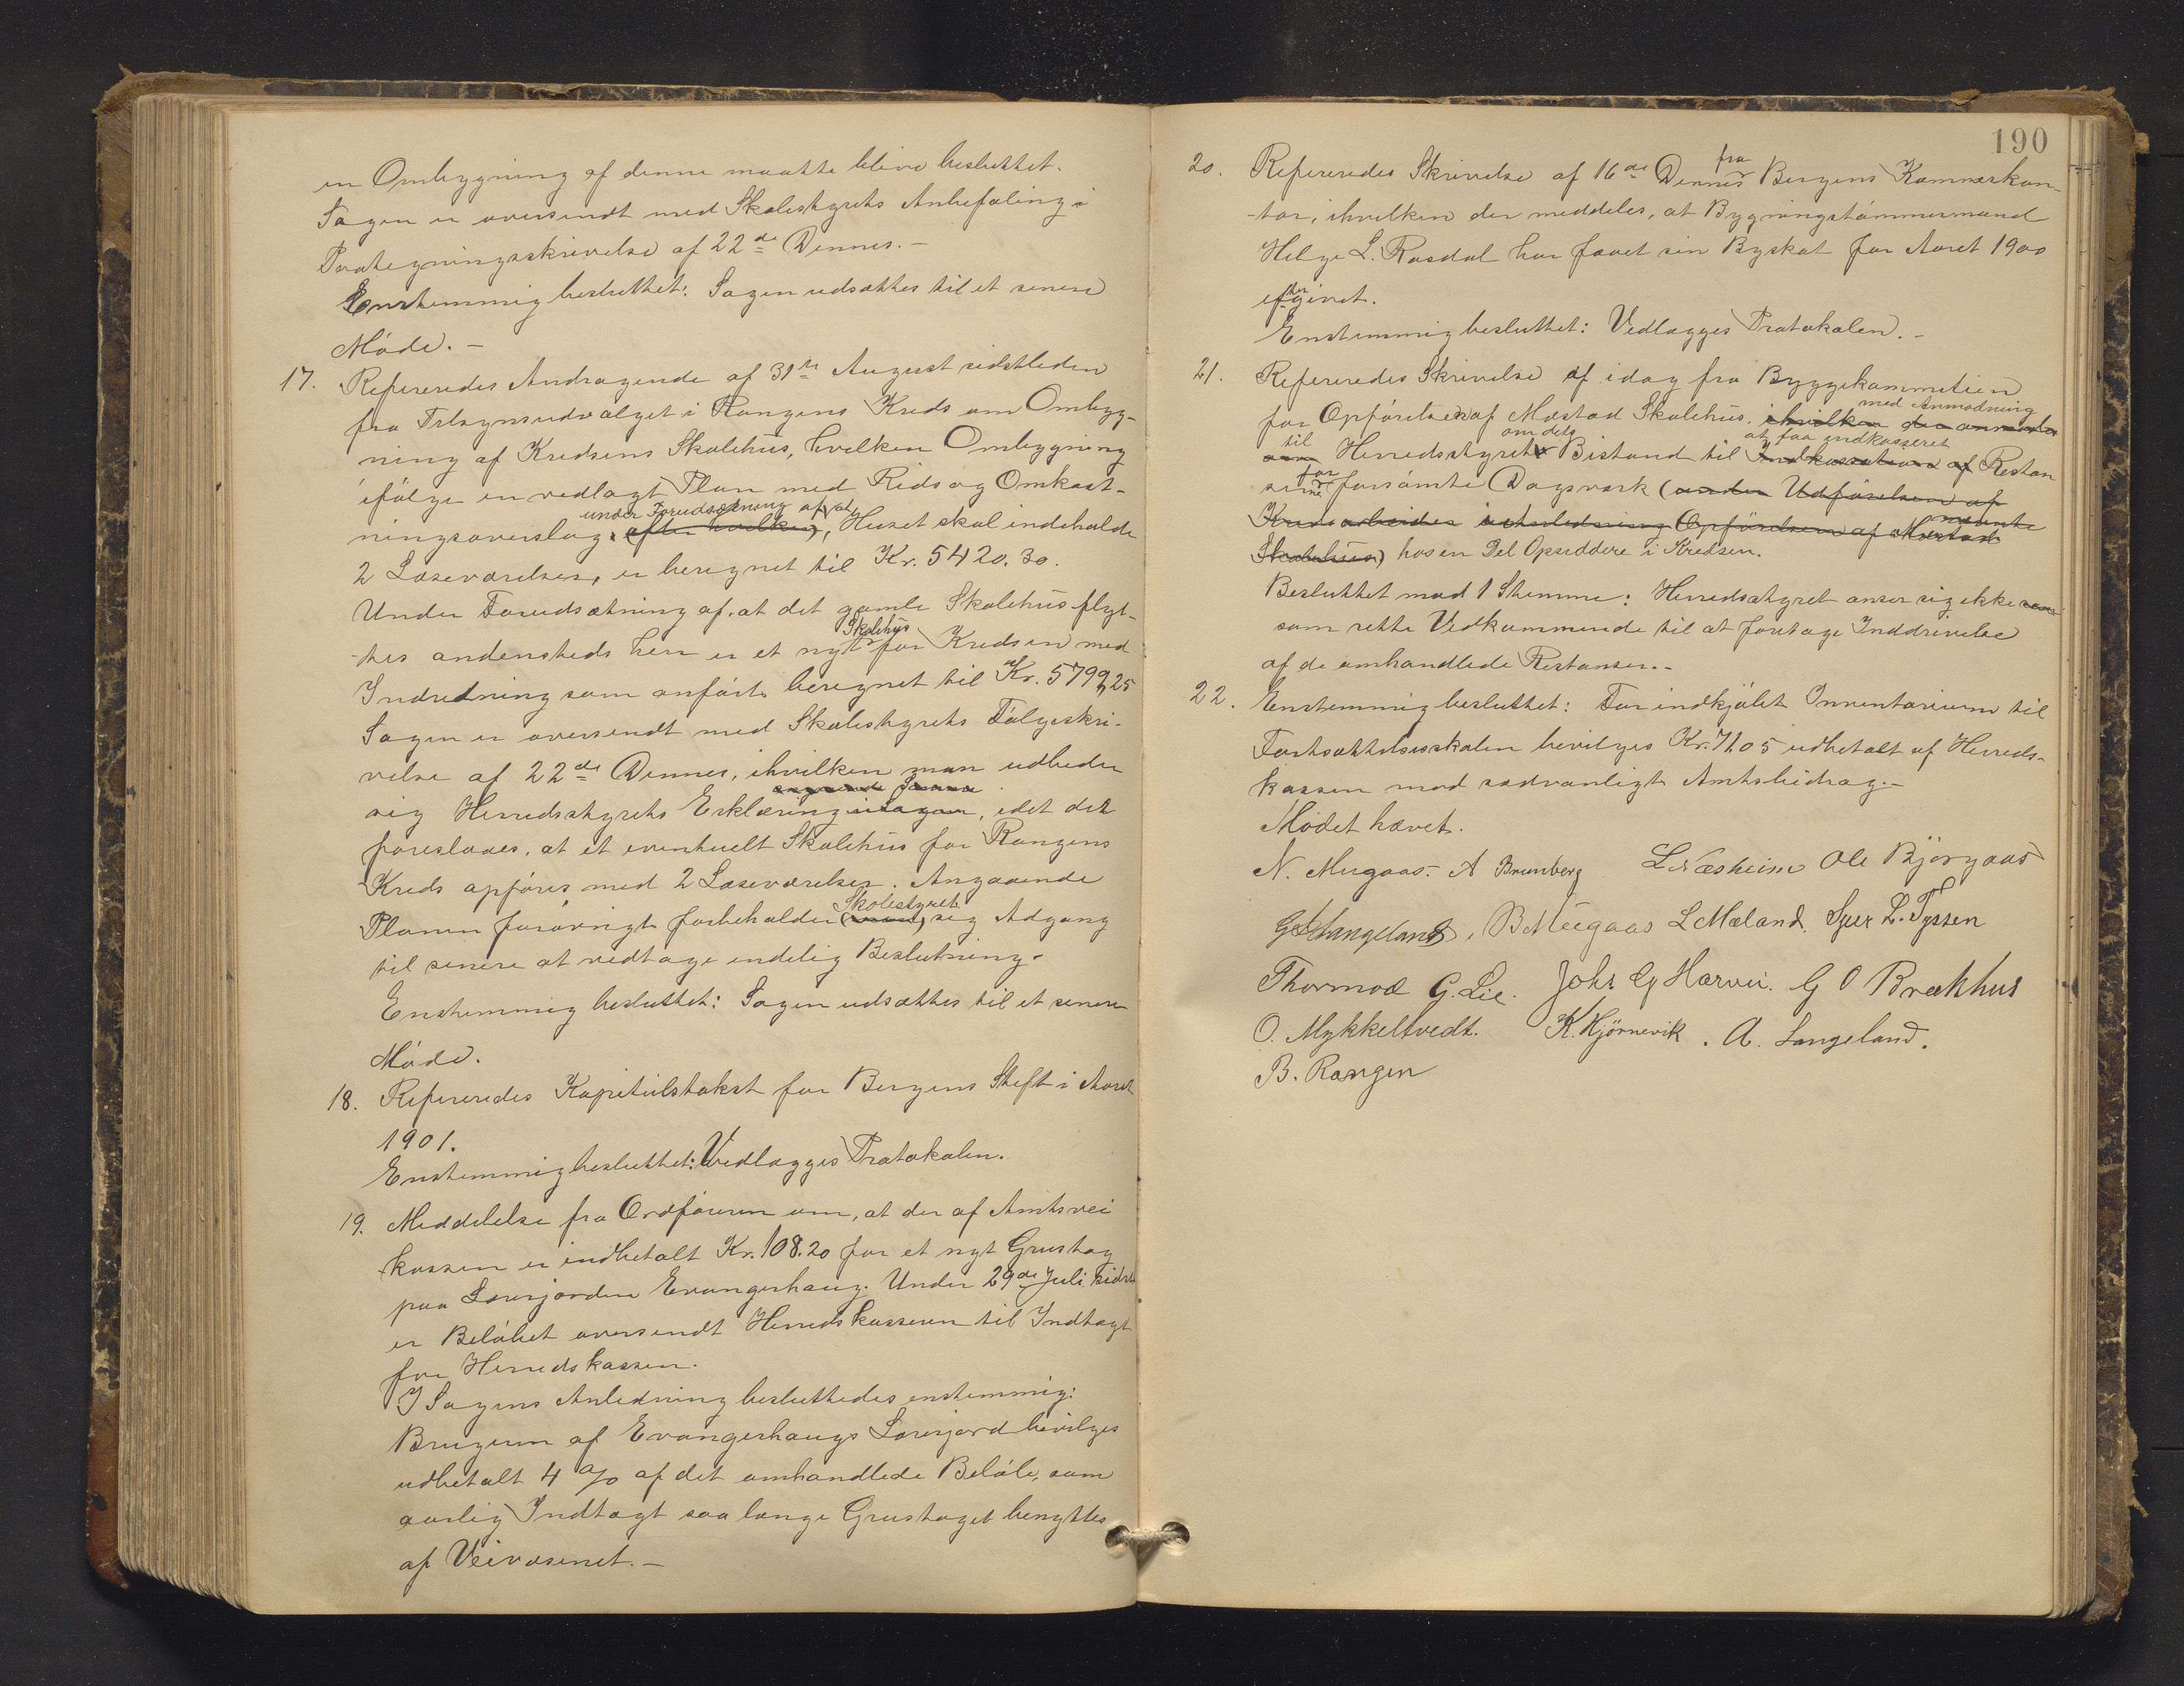 en Ombygning af denne maatte blive besluttet.
Sagen er oversendt med Skolestyrets Anbefaling i
Paategningsskrivelse af 22de Dennes. –
Enstemmig besluttet: Sagen udsættes til et senere
Møde. –
17. Refereredes Andragende af 31te August sidstleden
fra Tilsynsudvalget i Rongens Kreds om Ombyg-
ning af Kredsens Skolehus, hvilken Ombygning
ifølge en vedlagt Plan med Rids og Omkost-
under Forudsætning af, at
ningsoverslag, (efter hvilken), Huset skal indeholde
2 Læseværelser, er beregnet til Kr. 5420.30.
Under Forudsætning af, at det gamle Skolehus flyt-
Skolehus
-tes andensteds hen er et nyt for Kredsen med
Indredning som anført beregnet til Kr. 5799,25
Sagen er oversendt med Skolestyrets Følgeskri-
velse af 22de Dennes, ihvilken man udbeder
angaaende Samme
sig Herredsstyrets Erklæring i Sagen, idet det
foreslaaes, at et eventuelt Skolehus for Rongens
Kreds opføres med 2 Læseværelser. Angaaende
Skolestyret
Planen forøvrigt forbeholder (man) sig Adgang
til senere at vedtage endelig Beslutning.
Enstemmig besluttet: Sagen udsættes til et senere
Møde.
18. Refereredes Kapitelstakst for Bergens Stift i Aaret
1901.
Enstemmig besluttet: Vedlægges Protokolen.
19. Meddelelse fra Ordføreren om, at der af Amtsvei
kassen er indbetalt Kr. 108.20 for et nyt Grustag
paa Lensjorden Evangerhaug. Under 29de Juli sidstl
er Beløbet oversendt Herredskasseren til Indtægt
for Herredskassen.
I Sagens Anledning besluttedes enstemmig:
Brugeren af Evangerhaugs Lensjord bevilges
udbetalt 4 % af det omhandlede Beløb, som
aarlig Indtægt saa længe Grustaget benyttes
af Veivæsenet. –
190
20. Refereredes Skrivelse af 16de Dennes fra Bergens Kæmnerkon-
-tor, ihvilken der meddeles, at Bygningstømmermand
Helge L. Rasdal har faaet sin Byskat for Aaret 1900
eftergivet.
Enstemmig besluttet: Vedlægges Protokolen. –
21. Refereredes Skrivelse af idag fra Byggekommiteen
med Anmodning
for Opførelsen af Mestad Skolehus. ihvilken der anmodes
til om dets at faa indkasseret
om Herredsstyrets Bistand til Indkassation af Restan
serne for forsømte Dagsværk (under Udførelsen af
nævnte
Kredsarbeider i Anledning Opførelsen af Mestad
Skolehus) hos en Del Opsiddere i Kredsen.
Besluttet mod 1 Stemme: Herredsstyret anser sig ikke
som rette Vedkommende til at foretage Inddrivelse
af de omhandlede Restanser. –
22. Enstemmig besluttet: For indkjøbt Inventarium til
Fortsættelsesskolen bevilges Kr. 71.05 udbetalt af Herreds-
kassen mod sædvanligt Amtsbidrag. –
Mødet hævet.
N. Mugaas. A Brunborg L Næsheim Ole Bjørgaas
G Langeland, B Mugaas L Mæland. Sjur L. Tyssen
Thormod G. Lie. Johs G Horvei. G O Brækhus
O. Mykkeltvedt. K. Hjørnevik. A. Langeland.
B. Rongen